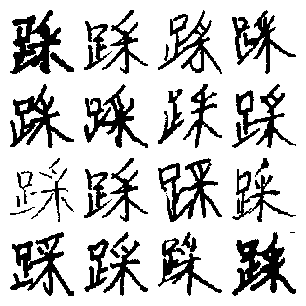 踩踩踩踩
踩踩踩踩
踩踩踩踩
踩踩踩踩